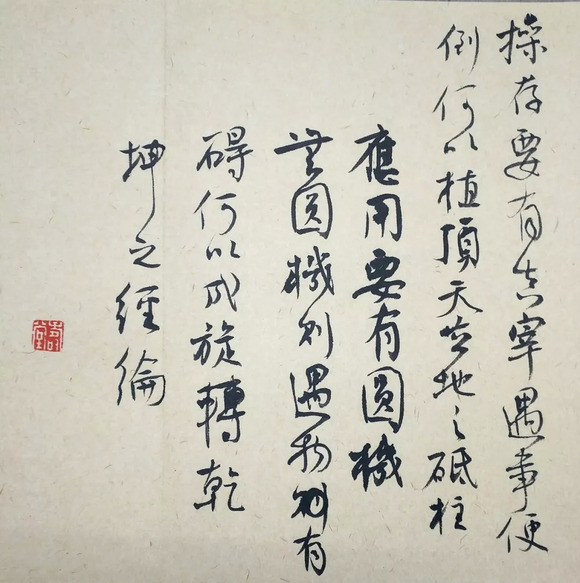 操存要有真宰遇事便
倒何以植頂天立地之砥柱
應用要有圓機
無圓機则遇物则有
碍何以成旋轉乾
坤之經綸